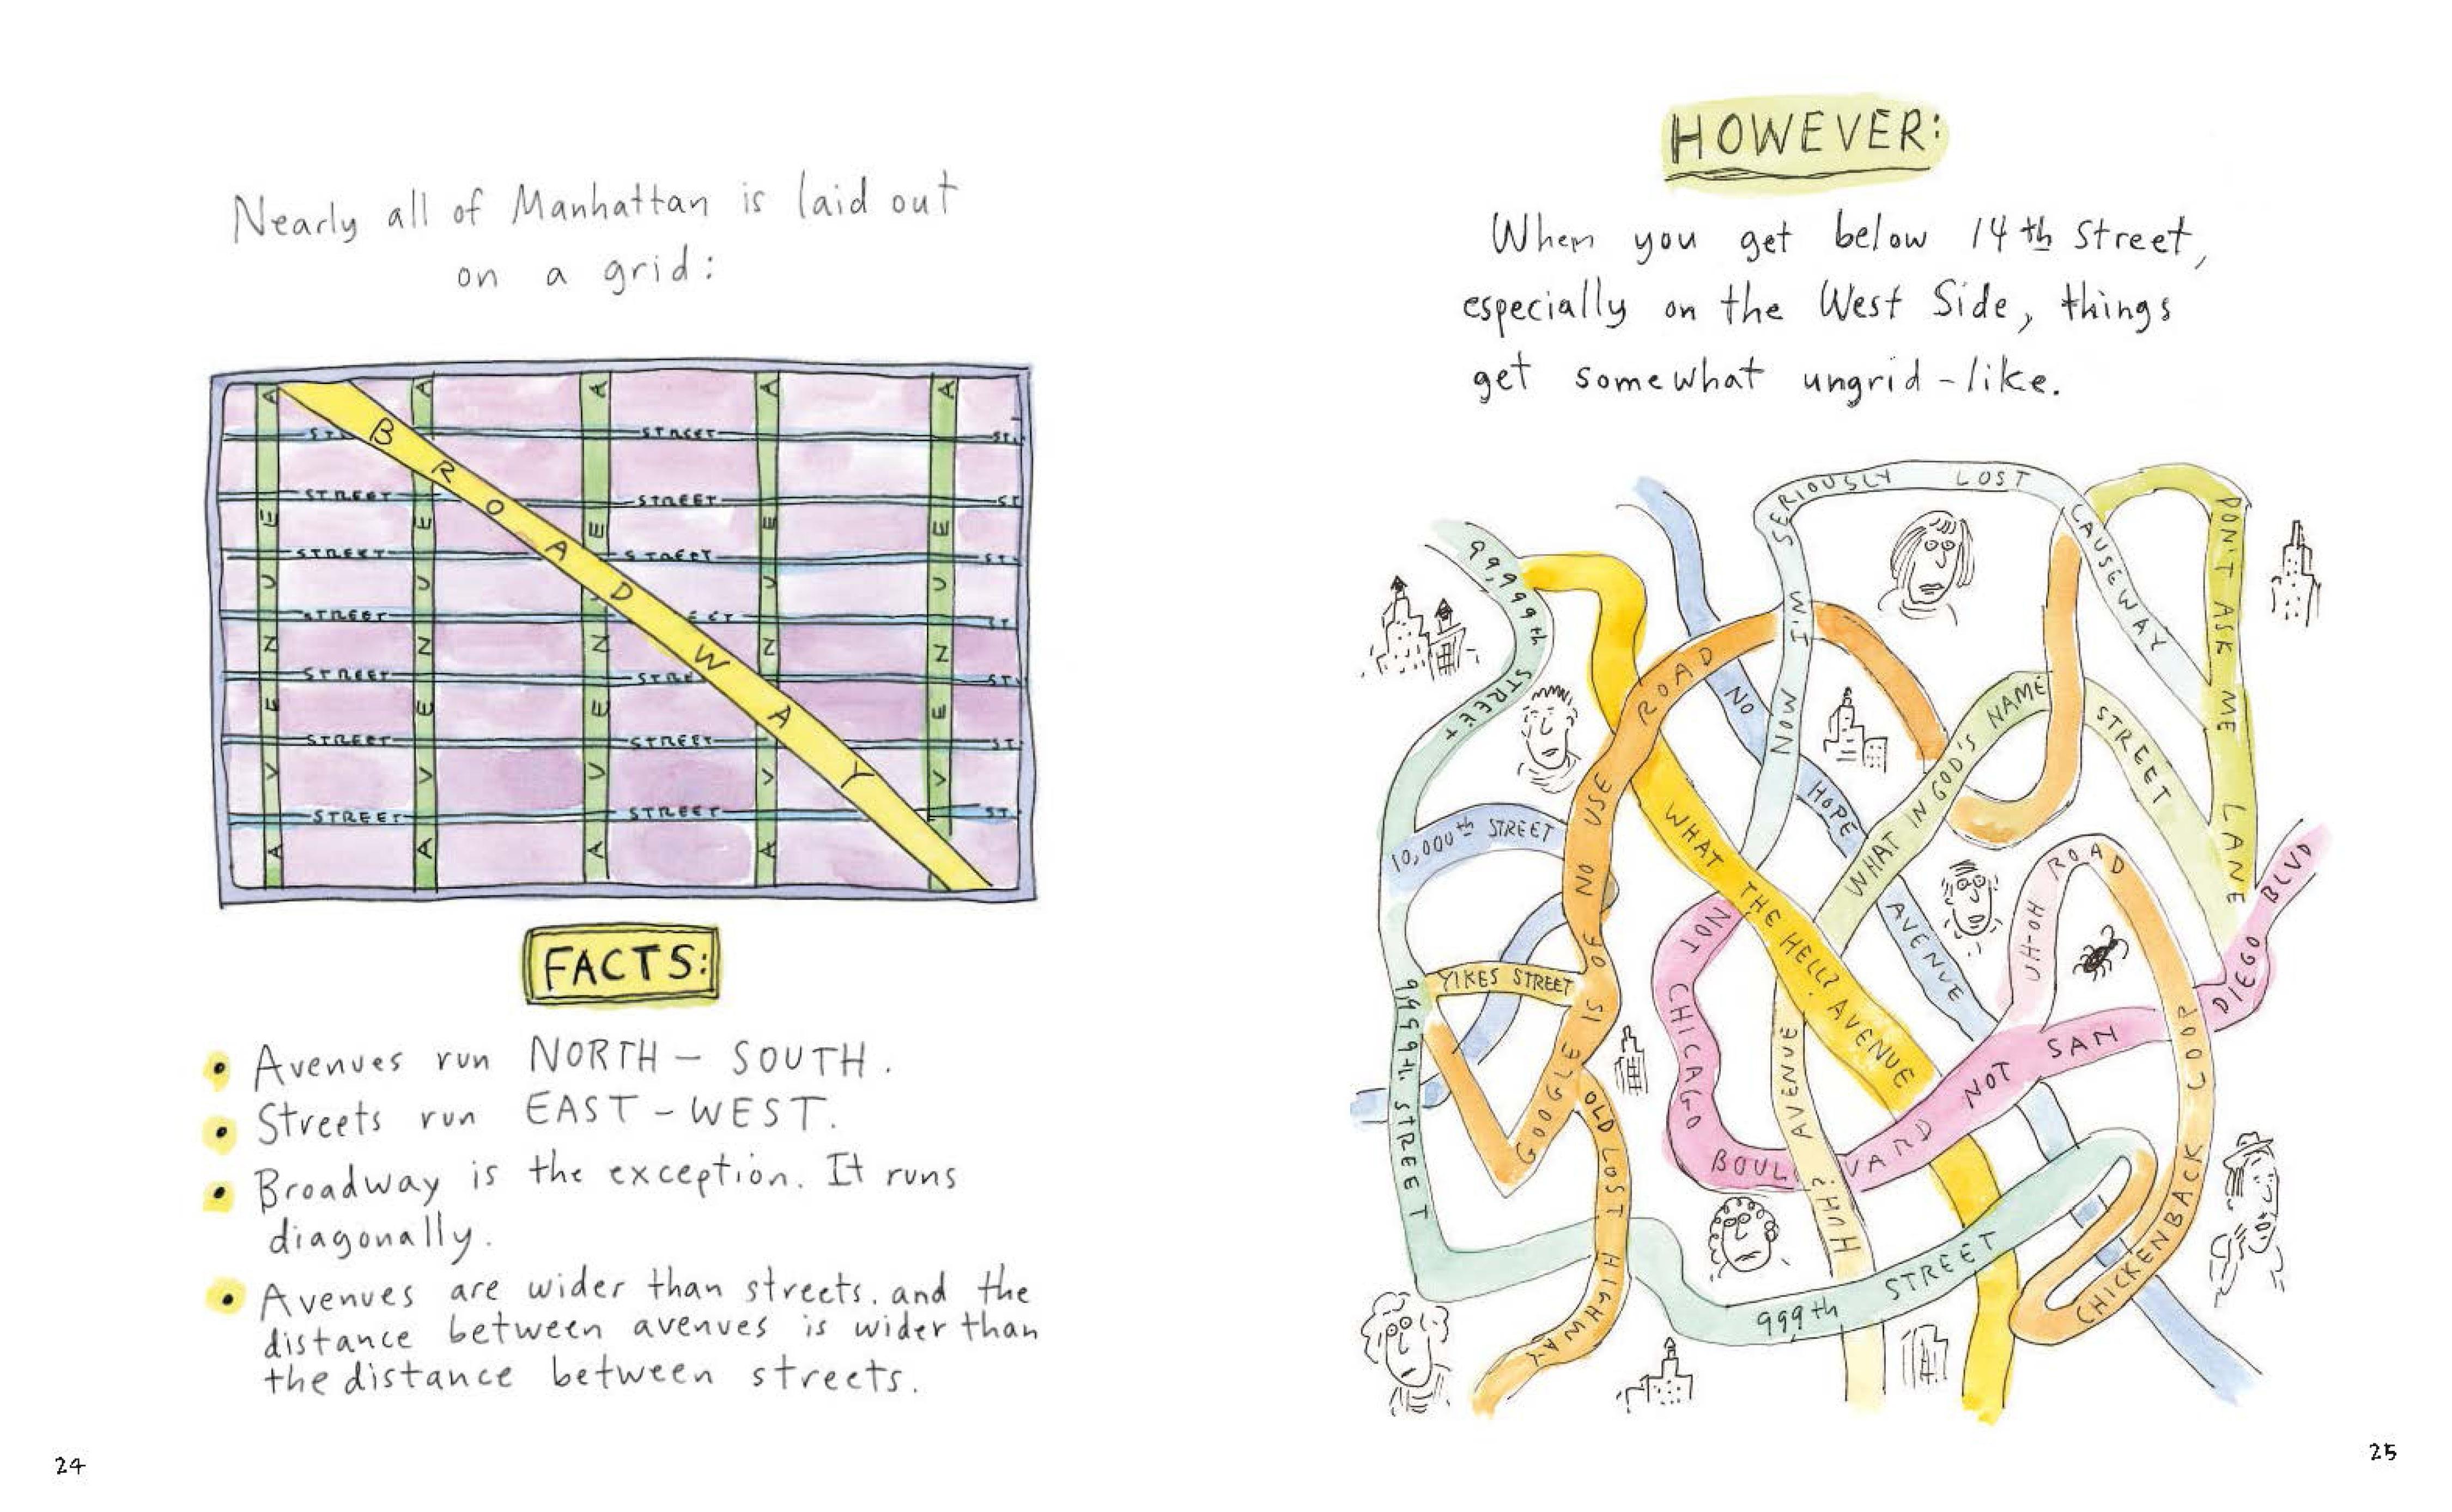 Nearly all of Manhattan is laid out
on a grid:
A A A A A
STREET ST.
STREET STREET ST
STREET STREET ST.
STREET EET ST
STREET STRE ST.
STREET STREET ST.
STREET STREET ST.
AVENUE
AVENUE
AVENUE
AVENUE
AVENUE
BROADWAY
FACTS:
• Avenues run NORTH – SOUTH.
• Streets run EAST – WEST.
• Broadway is the exception. It runs
diagonally.
• Avenues are wider than streets, and the
distance between avenues is wider than
the distance between streets.
24
HOWEVER:
When you get below 14th Street,
especially on the West Side, things
get somewhat ungrid-like.
99,999th STREET
SERIOUSLY LOST CAUSEWAY
DON'T ASK ME LANE
NOW I'M
GOOGLE IS OF NO USE ROAD
NO HOPE AVENUE
WHAT IN GOD'S NAME STREET
10,000th STREET
WHAT THE HELL? AVENUE
UH-OH ROAD
YIKES STREET
9999th STREET
JON CHICAGO BOULEVARD NOT SAN DIEGO BLVD
HUH? AVENUE
OLD LOST HIGHWAY
CHICKENBACK LOOP
999th STREET
25